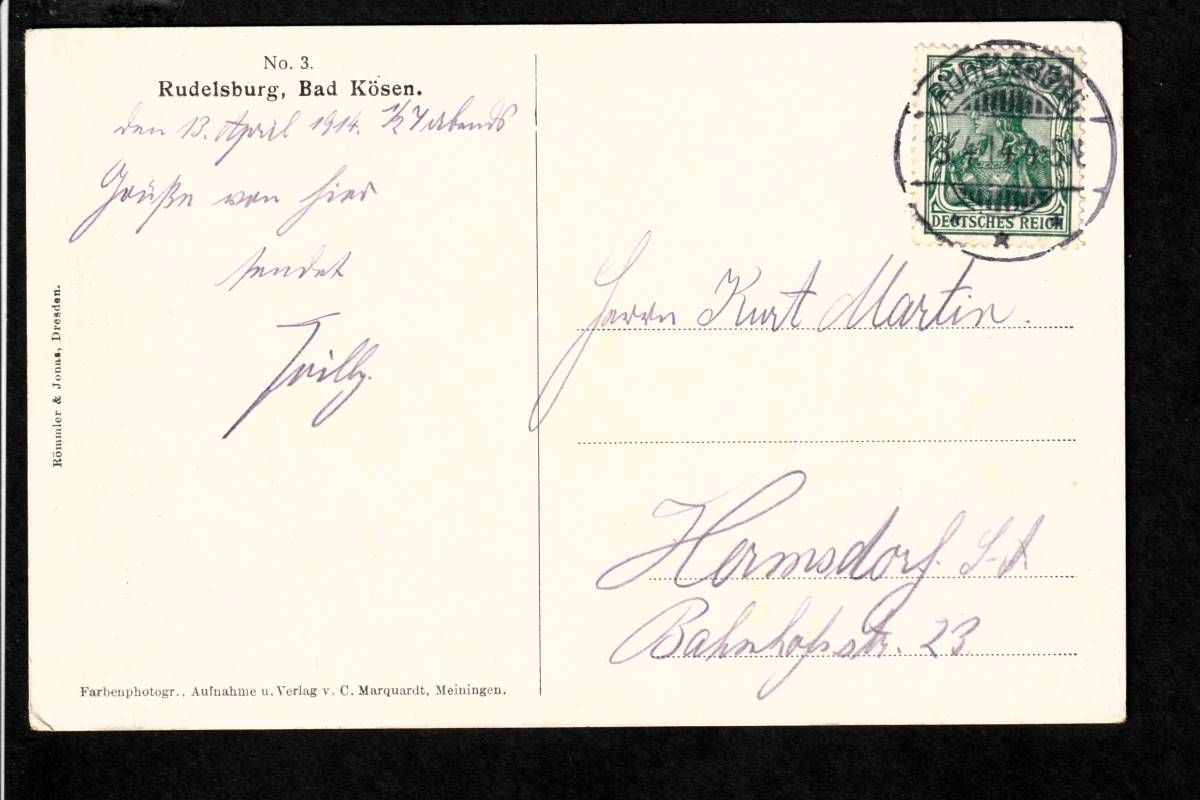 No. 3.
Rudelsburg, Bad Kösen.
den 13. April 1914. ½7 abends
Grüße von hier
sendet
Willy.
Römmler & Jonas, Dresden.
Farbenphotogr., Aufnahme u. Verlag v. C. Marquardt, Meiningen.
5
RUDELSBURG
13.4.14.4-5N
DEUTSCHES REICH
Herrn Kurt Martin.
Hermsdorf. S-A
Bahnhofsstr. 23